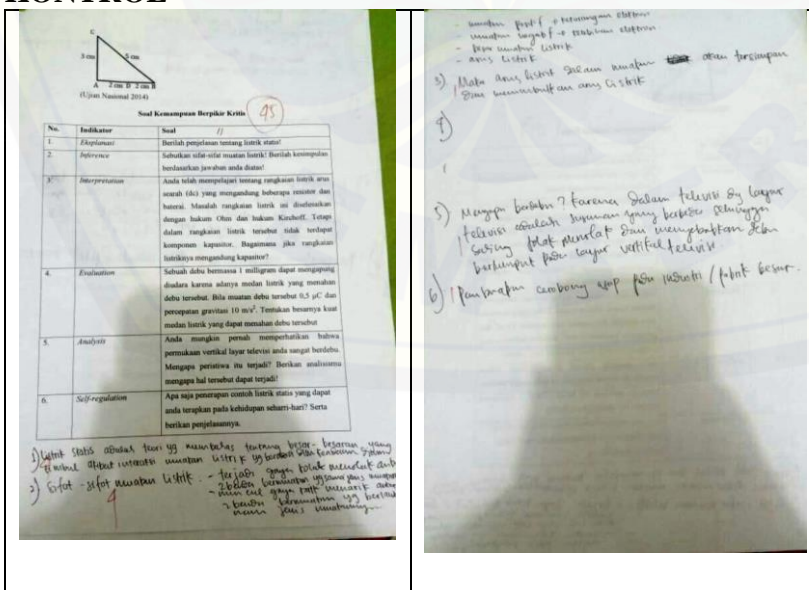 KONTROL
C
3 cm
5 cm
A 2 cm D 2 cm B
(Ujian Nasional 2014)
Soal Kemampuan Berpikir Kritis
45
No. Indikator Soal
1. Eksplanasi Berilah penjelasan tentang listrik statis!
2. Inference Sebutkan sifat-sifat muatan listrik! Berilah kesimpulan
berdasarkan jawaban anda diatas!
3. Interpretation Anda telah mempelajari tentang rangkaian listrik arus
searah (dc) yang mengandung beberapa resistor dan
baterai. Masalah rangkaian listrik ini diselesaikan
dengan hukum Ohm dan hukum Kirchoff. Tetapi
dalam rangkaian listrik tersebut tidak terdapat
komponen kapasitor. Bagaimana jika rangkaian
listriknya mengandung kapasitor?
4. Evaluation Sebuah debu bermassa 1 milligram dapat mengapung
diudara karena adanya medan listrik yang menahan
debu tersebut. Bila muatan debu tersebut 0,5 µC dan
percepatan gravitasi 10 m/s². Tentukan besarnya kuat
medan listrik yang dapat menahan debu tersebut
5. Analysis Anda mungkin pernah memperhatikan bahwa
permukaan vertikal layar televisi anda sangat berdebu.
Mengapa peristiwa itu terjadi? Berikan analisismu
mengapa hal tersebut dapat terjadi!
6. Self-regulation Apa saja penerapan contoh listrik statis yang dapat
anda terapkan pada kehidupan sehari-hari? Serta
berikan penjelasannya.
1) Listrik statis adalah teori yg membahas tentang besar-besaran yang
timbul akibat interaksi muatan listrik yg
2) Sifat-sifat muatan listrik. - terjadi gaya tolak menolak
2 benda bermuatan
gaya tarik menarik
2 benda bermuatan yg
jenis muatannya
4
- muatan positif → kekurangan elektron
- muatan negatif → kelebihan elektron
muatan listrik
- arus listrik
3) Maka arus listrik dalam muatan akan tersimpan
dan menimbulkan arus listrik
4)
5) Mengapa berdebu? karena dalam televisi dg layar
televisi adalah susunan yang berbeda sehingga
saling tolak menolak dan menyebabkan debu
berkumpul pada layar vertikal televisi
6) Penerapan cerobong asap pada industri / pabrik besar.